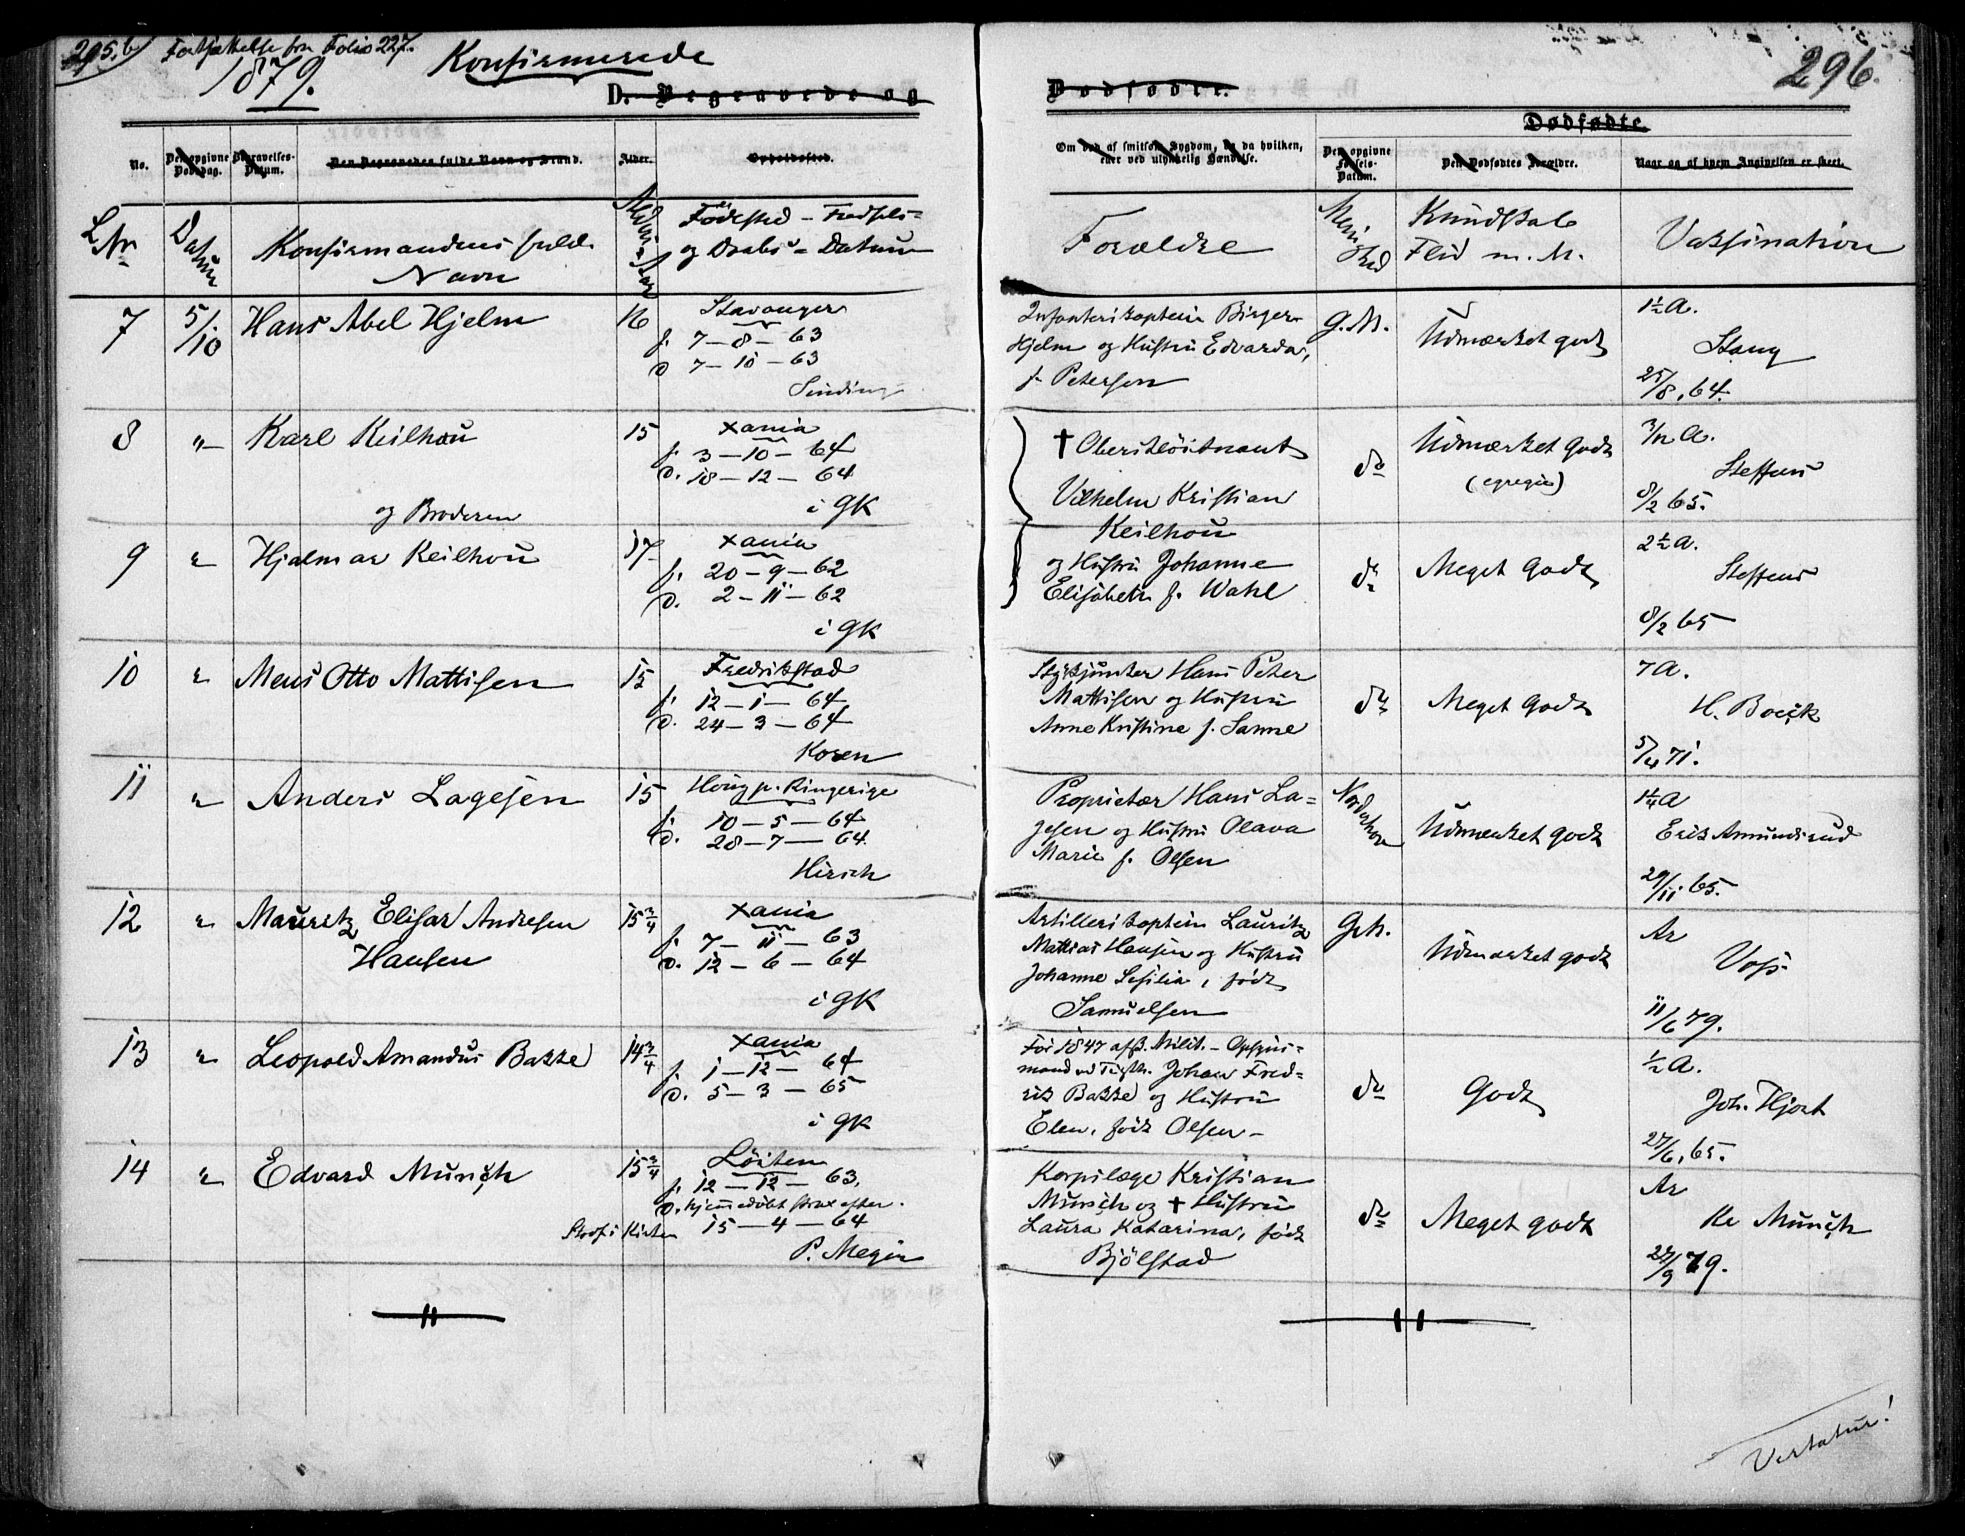 295.b Fortsættelse fra Folio 227.
1879.
Konfirmerede
D. Begravede og
No.
Den opgivne Dødsdag.
Begravelses-Datum.
Den Begravedes fulde Navn og Stand.
Alder.
Opholdssted.
L. Nr
Datum
Konfirmandens fulde
Navn
Fødested – Fødsels-
og Daabs-Datum
7 5/10 Hans Abel Hjelm 16 Stavanger
f. 7–8–63
d 7–10–63
Sinding
8 " Karl Keilhau 15 Xania
f. 3–10–64
d. 18–12–64
i GK
og Broderen
9 " Hjalmar Keilhau 17 Xania
f. 20–9–62
d. 2–11–62
i GK
10 " Mens Otto Mattisen 15 Fredrikstad
f. 12–1–64
d. 24–3–64
Koren
11 " Anders Lagesen 15 Houg p. Ringerige
f. 10–5–64
d. 28–7–64
Hirsch
12 " Mauritz Elisar Andresen 15 3/4 Xania
Hansen
f. 7–11–63
d. 12–6–64
i GK
13 " Leopold Amandus Bakke 14 3/4 Xania
f. 1–12–64
d. 5–3–65
i GK
14 " Edvard Munch 15 3/4 Löiten
f. 12–12–63.
d. hjemmedøbt strax efter.
Stadf. i Kirken 15–4–64
P. Mejer
296.
Dødfødte.
Om død af smitsom Sygdom, og da hvilken,
eller ved ulykkelig Hændelse.
Dødfødte.
Den opgivne Fødsels-Datum.
Den Dødfødtes Forældre.
Naar og af hvem Angivelsen er skeet.
Forældre
Menighed
Kundskab
Flid m. M.
Vaksination
Infanterikaptein Birger
Hjelm og Hustru Edvarda,
f. Petersen
G. M.
Udmærket godt
1½ A.
Stang
25/8, 64.
† Oberstlöitnant
Vilhelm Kristian
Keilhau
og Hustru Johanne
Elisabeth f. Wahl
do
Udmærket Godt
(egregie)
3/12 A.
Steffens
8/2 65.
do
Meget Godt
2½ A.
Steffens
8/2 65
Stykjunker Hans Peter
Mattisen og Hustru
Anne Kristine f. Sanne
do
Meget Godt
7 A.
H. Boeck
5/4 71.
Proprietær Hans La-
gesen og Hustru Olava
Marie f. Olsen
Udmærket godt
1¼ A
Erik Amundsrud
29/11. 65.
Artillerikaptein Lauritz
Mattias Hansen og Hustru
Johanne Sesilia, født
Samuelsen
Udmærket godt
Ar
Voss
11/6 79.
Før 1847 afsk. Milit. – Opsyns-
mand ved Tugth. Johan Fred-
rik Bakke og Hustru
Elen, født Olsen –
do
Godt
½ A.
Joh. Hjort
27/6, 65.
Korpslæge Kristian
Munch og † Hustru
Laura Katarina, født
Bjölstad
do
Meget godt
Ar
Kr Munch
27/9 79.
Vertatur!